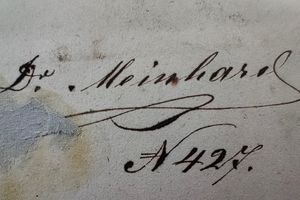 Dr. Meinhard
N 427.